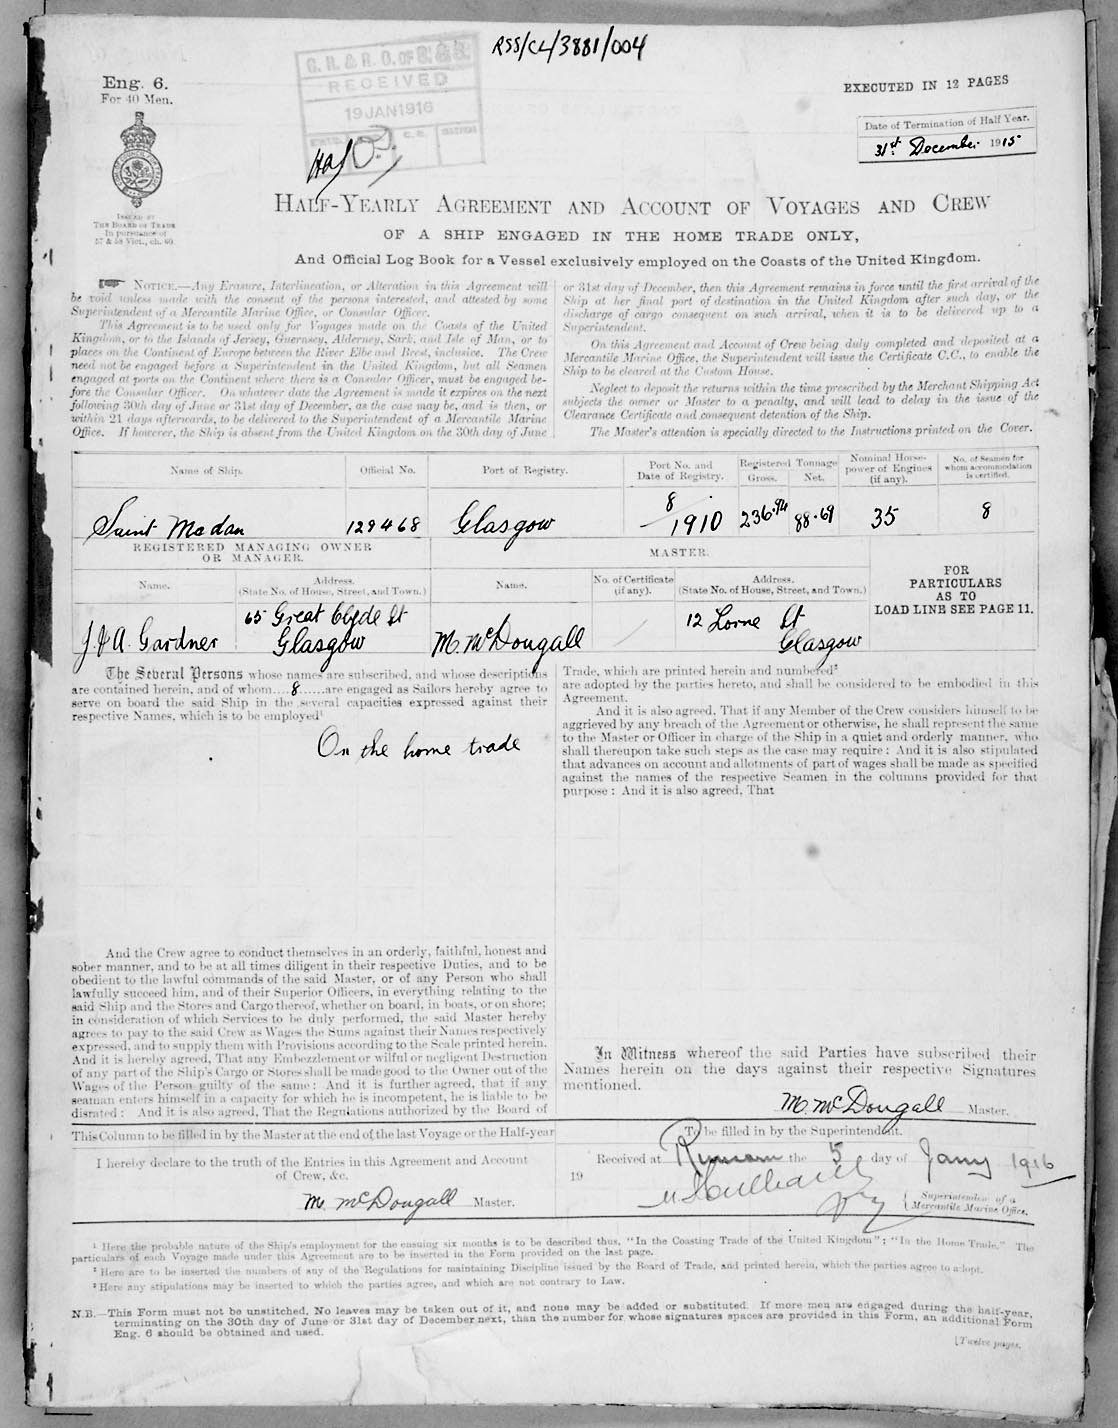 RSS/CL/3881/004
Eng. 6.
For 40 Men.
G. R. & R. O. OF S. & S.
RECEIVED
19 JAN 1916
EXECUTED IN 12 PAGES
Date of Termination of Half Year.
31st December 1915
ISSUED BY
THE BOARD OF TRADE
In pursuance of
57 & 58 Vict., ch. 60.
HALF-YEARLY AGREEMENT AND ACCOUNT OF VOYAGES AND CREW
OF A SHIP ENGAGED IN THE HOME TRADE ONLY,
And Official Log Book for a Vessel exclusively employed on the Coasts of the United Kingdom.
NOTICE.—Any Erasure, Interlineation, or Alteration in this Agreement will
be void unless made with the consent of the persons interested, and attested by some
Superintendent of a Mercantile Marine Office, or Consular Officer.
This Agreement is to be used only for Voyages made on the Coasts of the United
Kingdom, or to the Islands of Jersey, Guernsey, Alderney, Sark, and Isle of Man, or to
places on the Continent of Europe between the River Elbe and Brest, inclusive. The Crew
need not be engaged before a Superintendent in the United Kingdom, but all Seamen
engaged at ports on the Continent where there is a Consular Officer, must be engaged be-
fore the Consular Officer. On whatever date the Agreement is made it expires on the next
following 30th day of June or 31st day of December, as the case may be, and is then, or
within 21 days afterwards, to be delivered to the Superintendent of a Mercantile Marine
Office. If however, the Ship is absent from the United Kingdom on the 30th day of June
or 31st day of December, then this Agreement remains in force until the first arrival of the
Ship at her final port of destination in the United Kingdom after such day, or the
discharge of cargo consequent on such arrival, when it is to be delivered up to a
Superintendent.
On this Agreement and Account of Crew being duly completed and deposited at a
Mercantile Marine Office, the Superintendent will issue the Certificate C.C., to enable the
Ship to be cleared at the Custom House.
Neglect to deposit the returns within the time prescribed by the Merchant Shipping Act
subjects the owner or Master to a penalty, and will lead to delay in the issue of the
Clearance Certificate and consequent detention of the Ship.
The Master's attention is specially directed to the Instructions printed on the Cover.
Name of Ship. Official No. Port of Registry. Port No. and Date of Registry. Registered Tonnage Gross. Net. Nominal Horse-power of Engines (if any). No. of Seamen for whom accommodation is certified.
Saint Modan 129468 Glasgow 8/1910 236.94 88.69 35 8
REGISTERED MANAGING OWNER
OR MANAGER.
MASTER.
Name. Address. (State No. of House, Street, and Town.) Name. No. of Certificate (if any). Address. (State No. of House, Street, and Town.)
FOR
PARTICULARS
AS TO
LOAD LINE SEE PAGE 11.
J. & A. Gardner 65 Great Clyde St Glasgow M. McDougall 12 Lorne St Glasgow
The Several Persons whose names are subscribed, and whose descriptions
are contained herein, and of whom....8......are engaged as Sailors hereby agree to
serve on board the said Ship in the several capacities expressed against their
respective Names, which is to be employed¹
On the home trade
And the Crew agree to conduct themselves in an orderly, faithful, honest and
sober manner, and to be at all times diligent in their respective Duties, and to be
obedient to the lawful commands of the said Master, or of any Person who shall
lawfully succeed him, and of their Superior Officers, in everything relating to the
said Ship and the Stores and Cargo thereof, whether on board, in boats, or on shore;
in consideration of which Services to be duly performed, the said Master hereby
agrees to pay to the said Crew as Wages the Sums against their Names respectively
expressed, and to supply them with Provisions according to the Scale printed herein.
And it is hereby agreed, That any Embezzlement or wilful or negligent Destruction
of any part of the Ship's Cargo or Stores shall be made good to the Owner out of the
Wages of the Person guilty of the same: And it is further agreed, that if any
seaman enters himself in a capacity for which he is incompetent, he is liable to be
disrated: And it is also agreed, That the Regulations authorized by the Board of
Trade, which are printed herein and numbered²
are adopted by the parties hereto, and shall be considered to be embodied in this
Agreement.
And it is also agreed, That if any Member of the Crew considers himself to be
aggrieved by any breach of the Agreement or otherwise, he shall represent the same
to the Master or Officer in charge of the Ship in a quiet and orderly manner, who
shall thereupon take such steps as the case may require: And it is also stipulated
that advances on account and allotments of part of wages shall be made as specified
against the names of the respective Seamen in the columns provided for that
purpose: And it is also agreed, That
In Witness whereof the said Parties have subscribed their
Names herein on the days against their respective Signatures
mentioned.
M. McDougall Master.
This Column to be filled in by the Master at the end of the last Voyage or the Half-year
I hereby declare to the truth of the Entries in this Agreement and Account
of Crew, &c.
M. McDougall Master.
To be filled in by the Superintendent.
Received at Runcorn the 5 day of Jany 1916
19
Superintendent of a
Mercantile Marine Office.
¹ Here the probable nature of the Ship's employment for the ensuing six months is to be described thus, "In the Coasting Trade of the United Kingdom"; "In the Home Trade." The
particulars of each Voyage made under this Agreement are to be inserted in the Form provided on the last page.
² Here are to be inserted the numbers of any of the Regulations for maintaining Discipline issued by the Board of Trade, and printed herein, which the parties agree to adopt.
³ Here any stipulations may be inserted to which the parties agree, and which are not contrary to Law.
N.B.—This Form must not be unstitched. No leaves may be taken out of it, and none may be added or substituted. If more men are engaged during the half-year,
terminating on the 30th day of June or 31st day of December next, than the number for whose signatures spaces are provided in this Form, an additional Form
Eng. 6 should be obtained and used.
[Twelve pages.